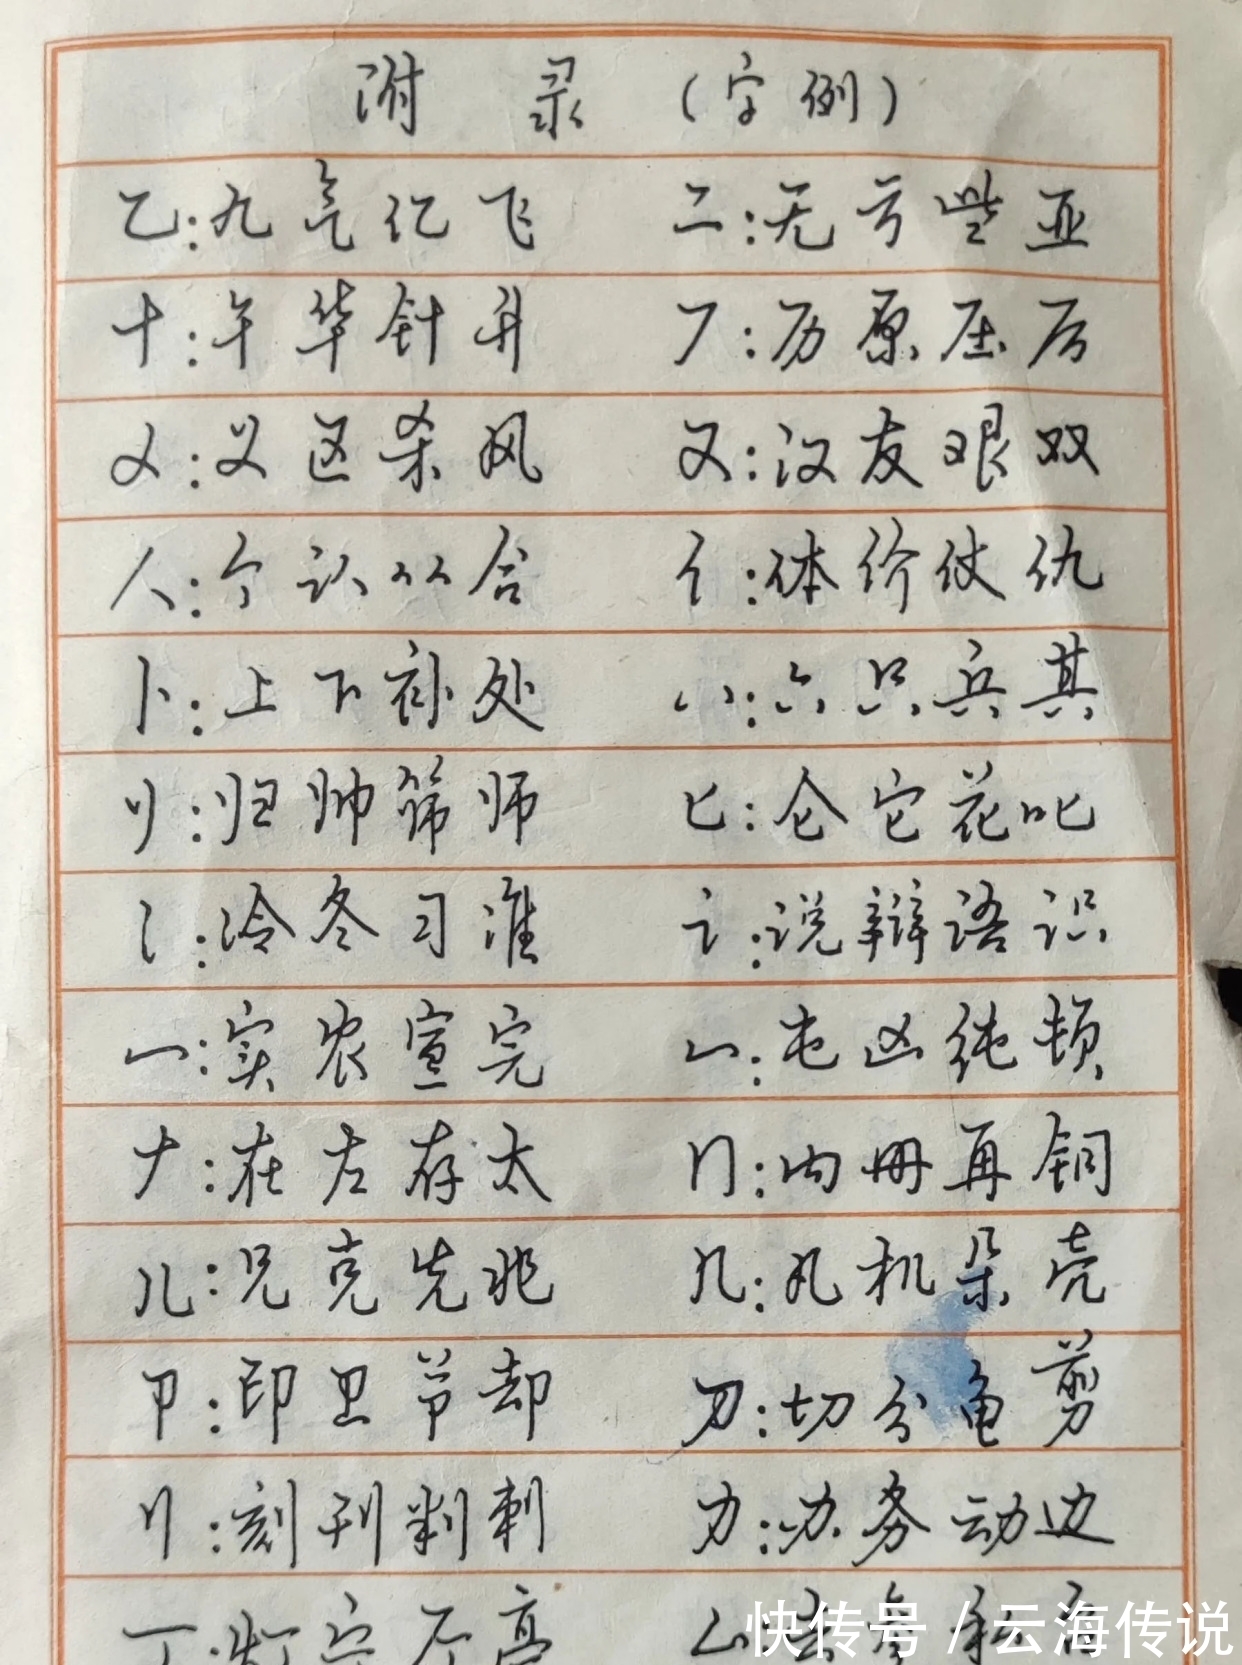 附 录 (字例)
乙:九气亿飞 二:无亏些亚
十:午华针升 厂:历原压后
乂:义区杀风 又:汉友艰双
人:个认以合 亻:体价仗仇
卜:上下补处 八:六只兵其
刂:归帅筛师 匕:仑它花叱
冫:冷冬习准 讠:说辩语识
冖:实农宣完 凵:屯凶纯顿
𠂇:在左存太 冂:内册再铜
儿:兄克先兆 几:凡机朵壳
卩:印卫节却 刀:切分龟剪
刂:刻刊判刺 力:办务动边
丁:灯宁 亭 厶:去参
快传号/云海传说